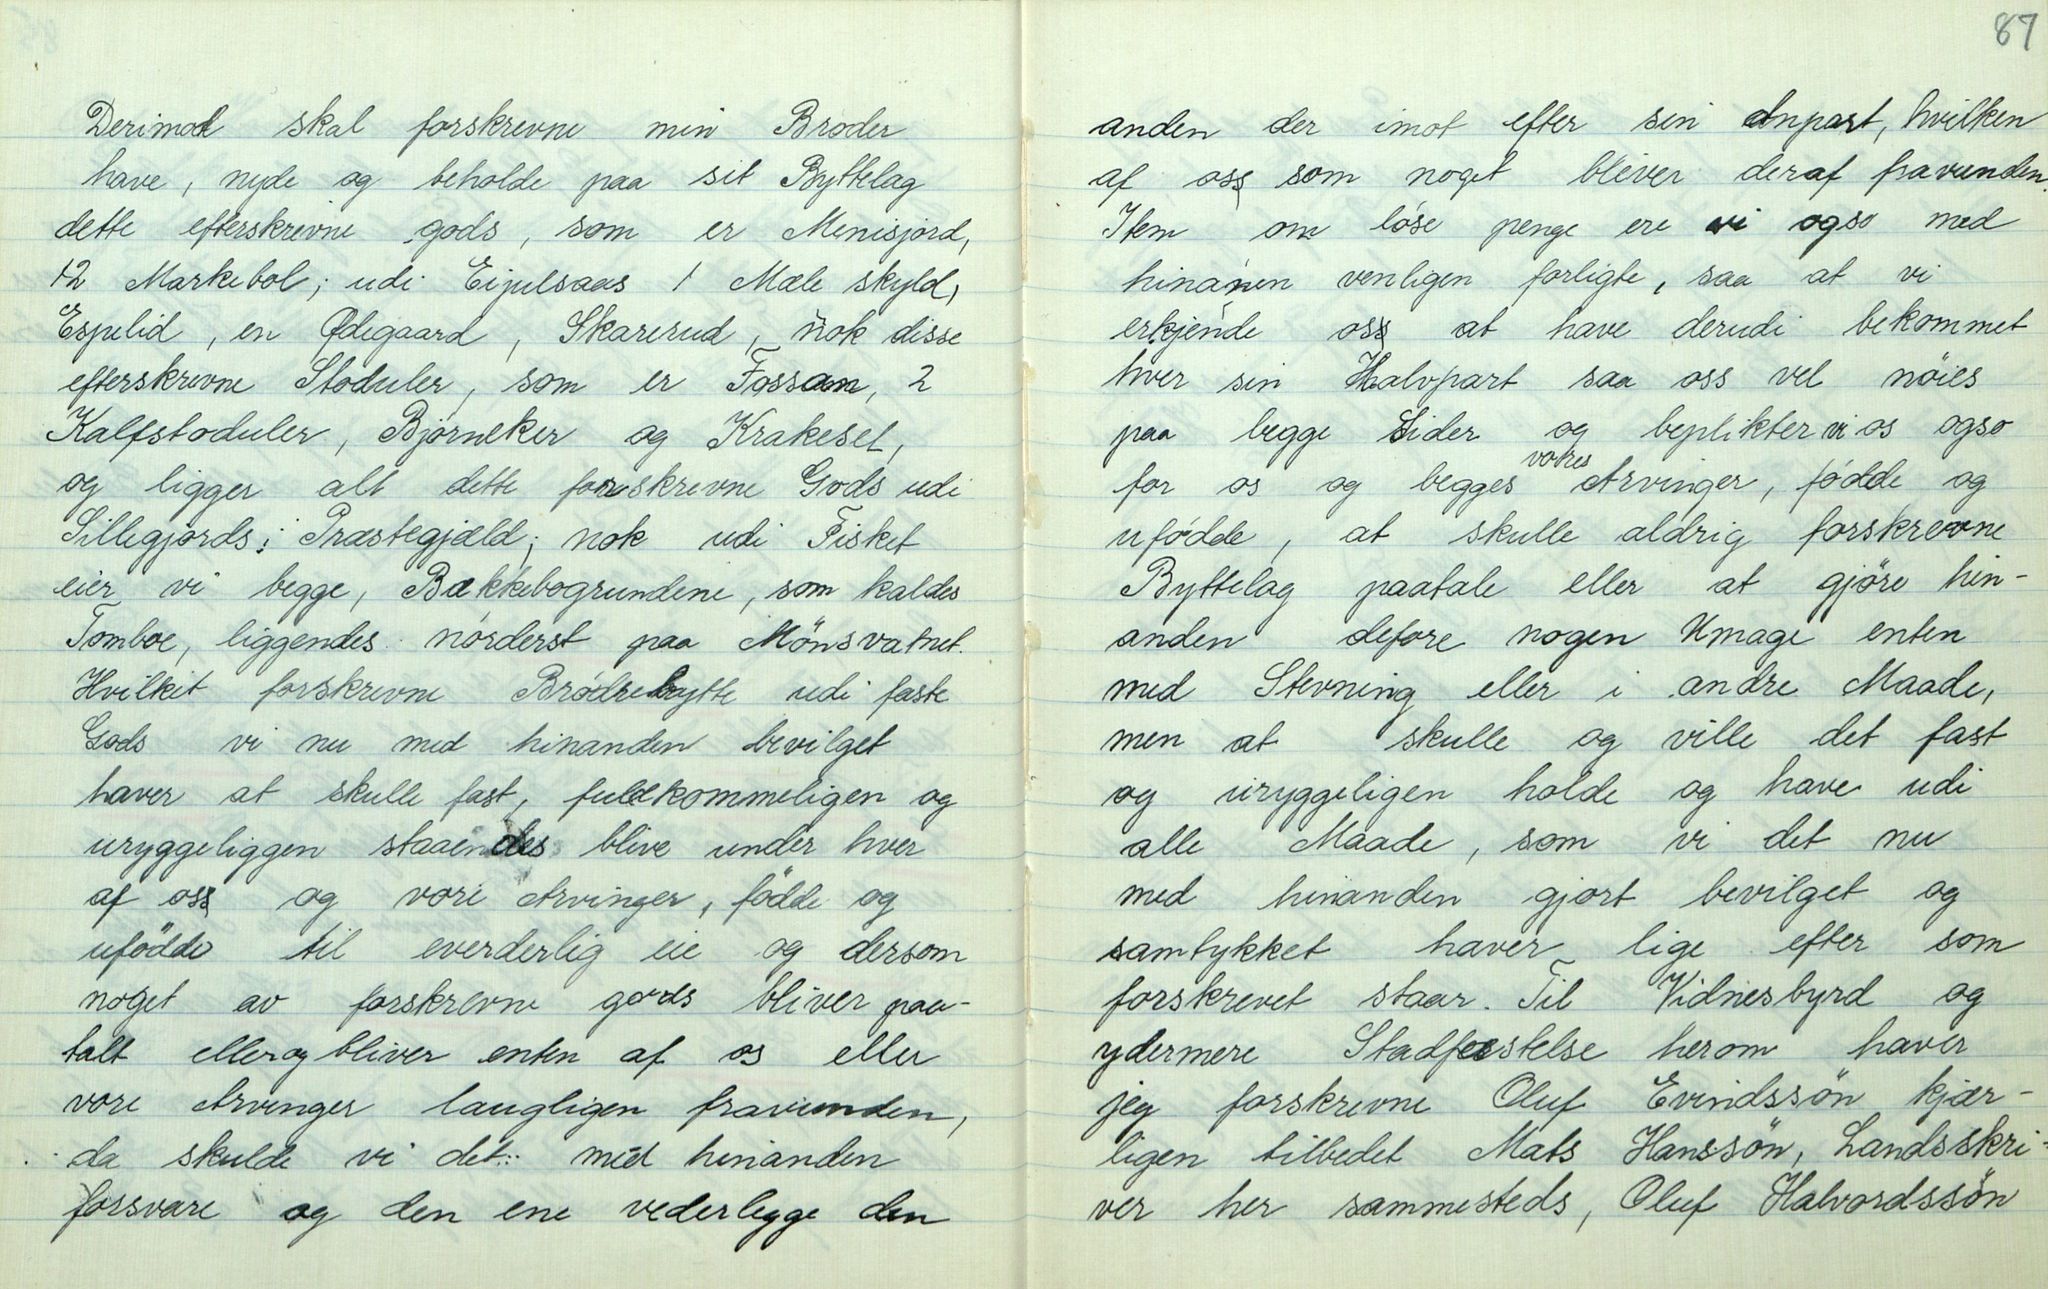 Derimod skal forskrevne min Broder
have, nyde og beholde paa sit Byttelag
dette efterskrevne gods, som er Menisjord,
12 Markebol; udi Eijulsaas 1 Mæle skyld,
Espelid, en Ødegaard, Skarerud, nok disse
efterskrevne Stoduler, som er Fossan, 2
Kalfstoduler, Bjørneker og Krakeset,
og ligger alt dette forskrevne Gods udi
Sillegjords Præstegjæld; nok udi Fisket
eier vi begge, Bækkebogrundene, som kaldes
Tomboe, liggendes nörderst paa Mönsvatnet.
Hvilket forskrevne Brödrebytte udi faste
Gods vi nu med hinanden bevilget
haver at skulle fast, fuldkommeligen og
uryggeliggen staaendes blive under hver
af oss og vore Arvinger, fødde og
ufödde til everderlig eie og dersom
noget av forskrevne gods bliver paa-
talt eller og bliver enten af os eller
vore Arvinger laugligen fravunden,
da skulde vi det med hinanden
forsvare og den ene vederlegge den
87
anden der imot efter sin Anpart, hvilken
af oss som noget bliver deraf fravunden.
Item om löse penge ere vi ogso med
hinanen venligen forligte, saa at vi
erkjende oss at have derudi bekommet
hver sin Halvpart saa oss vel nöies
paa begge Sider og beplikter vi os ogso
for os og begges vores Arvinger, födde og
ufödde, at skulle aldrig forskrevne
Byttelag paatale eller at gjöre hin-
anden defore nogen Umage enten
med Stevning eller i andre Maade,
men at skulle og ville det fast
og uryggeligen holde og have udi
alle Maade, som vi det nu
med hinanden gjort bevilget og
samtykket haver lige efter som
forskrevet staar. Til Vidnesbyrd og
ydermere Stadfestelse herom haver
jeg forskrevne Oluf Evindssön kjær-
ligen tilbedet Mats Hanssön, Landsskri-
ver her sammesteds, Oluf Halvordssön